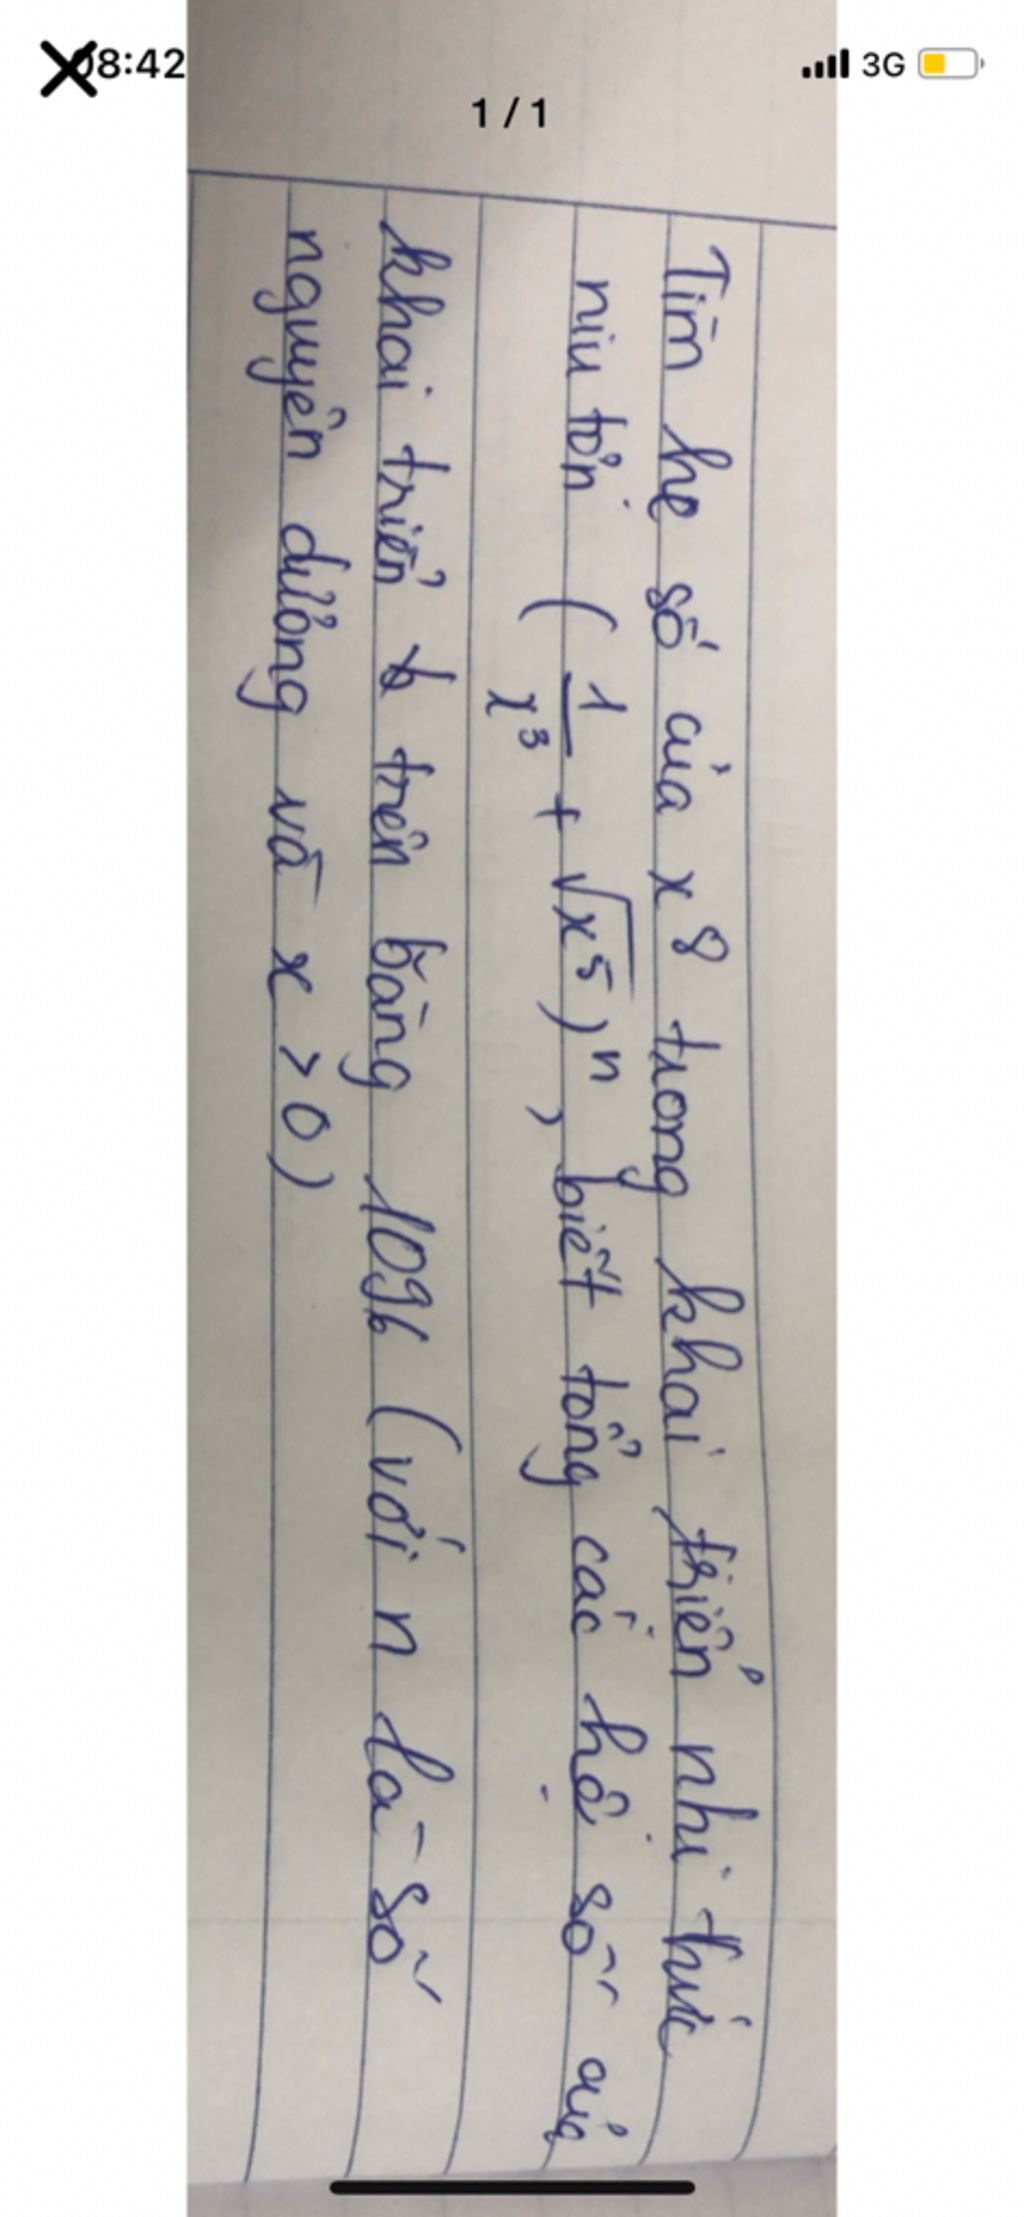 08:42
3G
1 / 1
Tìm hệ số của x⁸ trong khai triển nhị thức
niu tơn (1/x³ + √x⁵)ⁿ, biết tổng các hệ số của
khai triển trên bằng 1096 (với n là số
nguyên dương và x > 0)